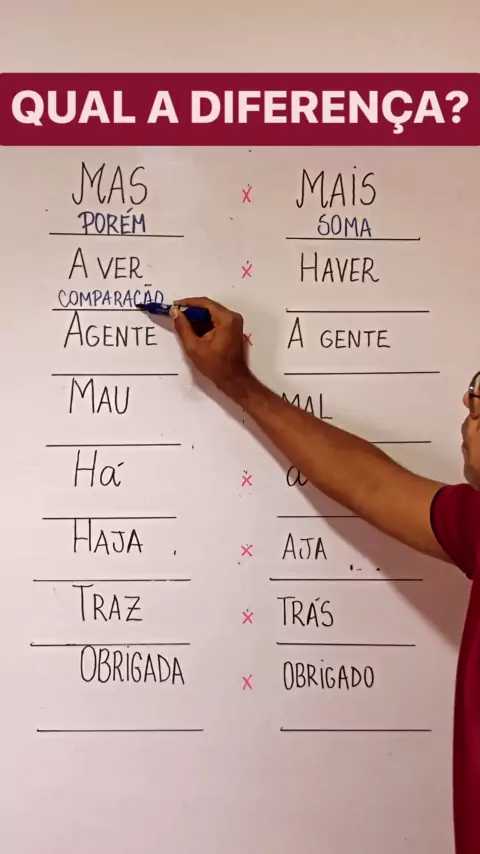 QUAL A DIFERENÇA?
MAS x MAIS
PORÉM SOMA
A VER x HAVER
COMPARAÇÃO
AGENTE x A GENTE
MAU MAL
Há x a
HAJA x AJA
TRAZ x TRÁS
OBRIGADA x OBRIGADO